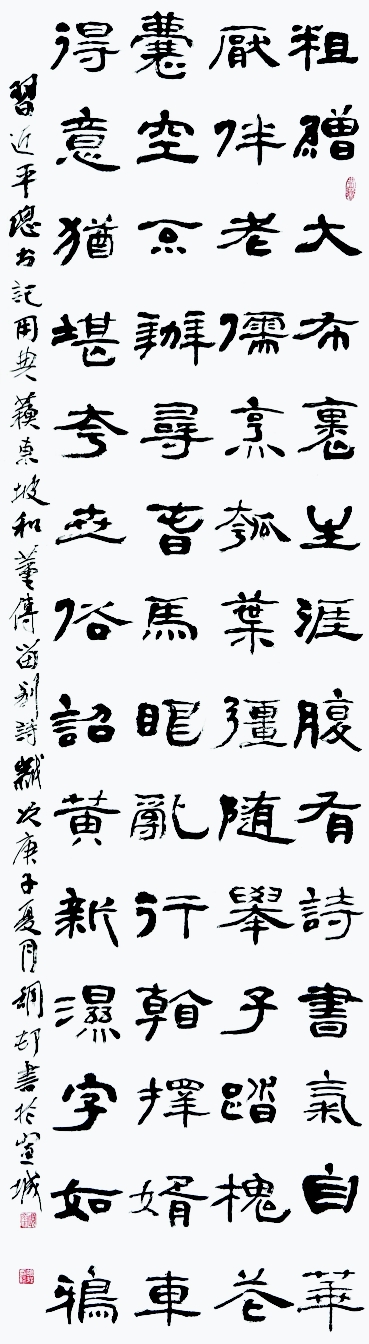 粗繒大布裹生涯腹有詩書氣自華
厭伴老儒烹瓠葉彊隨舉子踏槐花
囊空不辦尋春馬眼亂行看擇婿車
得意猶堪夸世俗詔黃新濕字如鴉
習近平總书記用典蘇東坡和董傳留別詩歲次庚子夏月
書於宣城